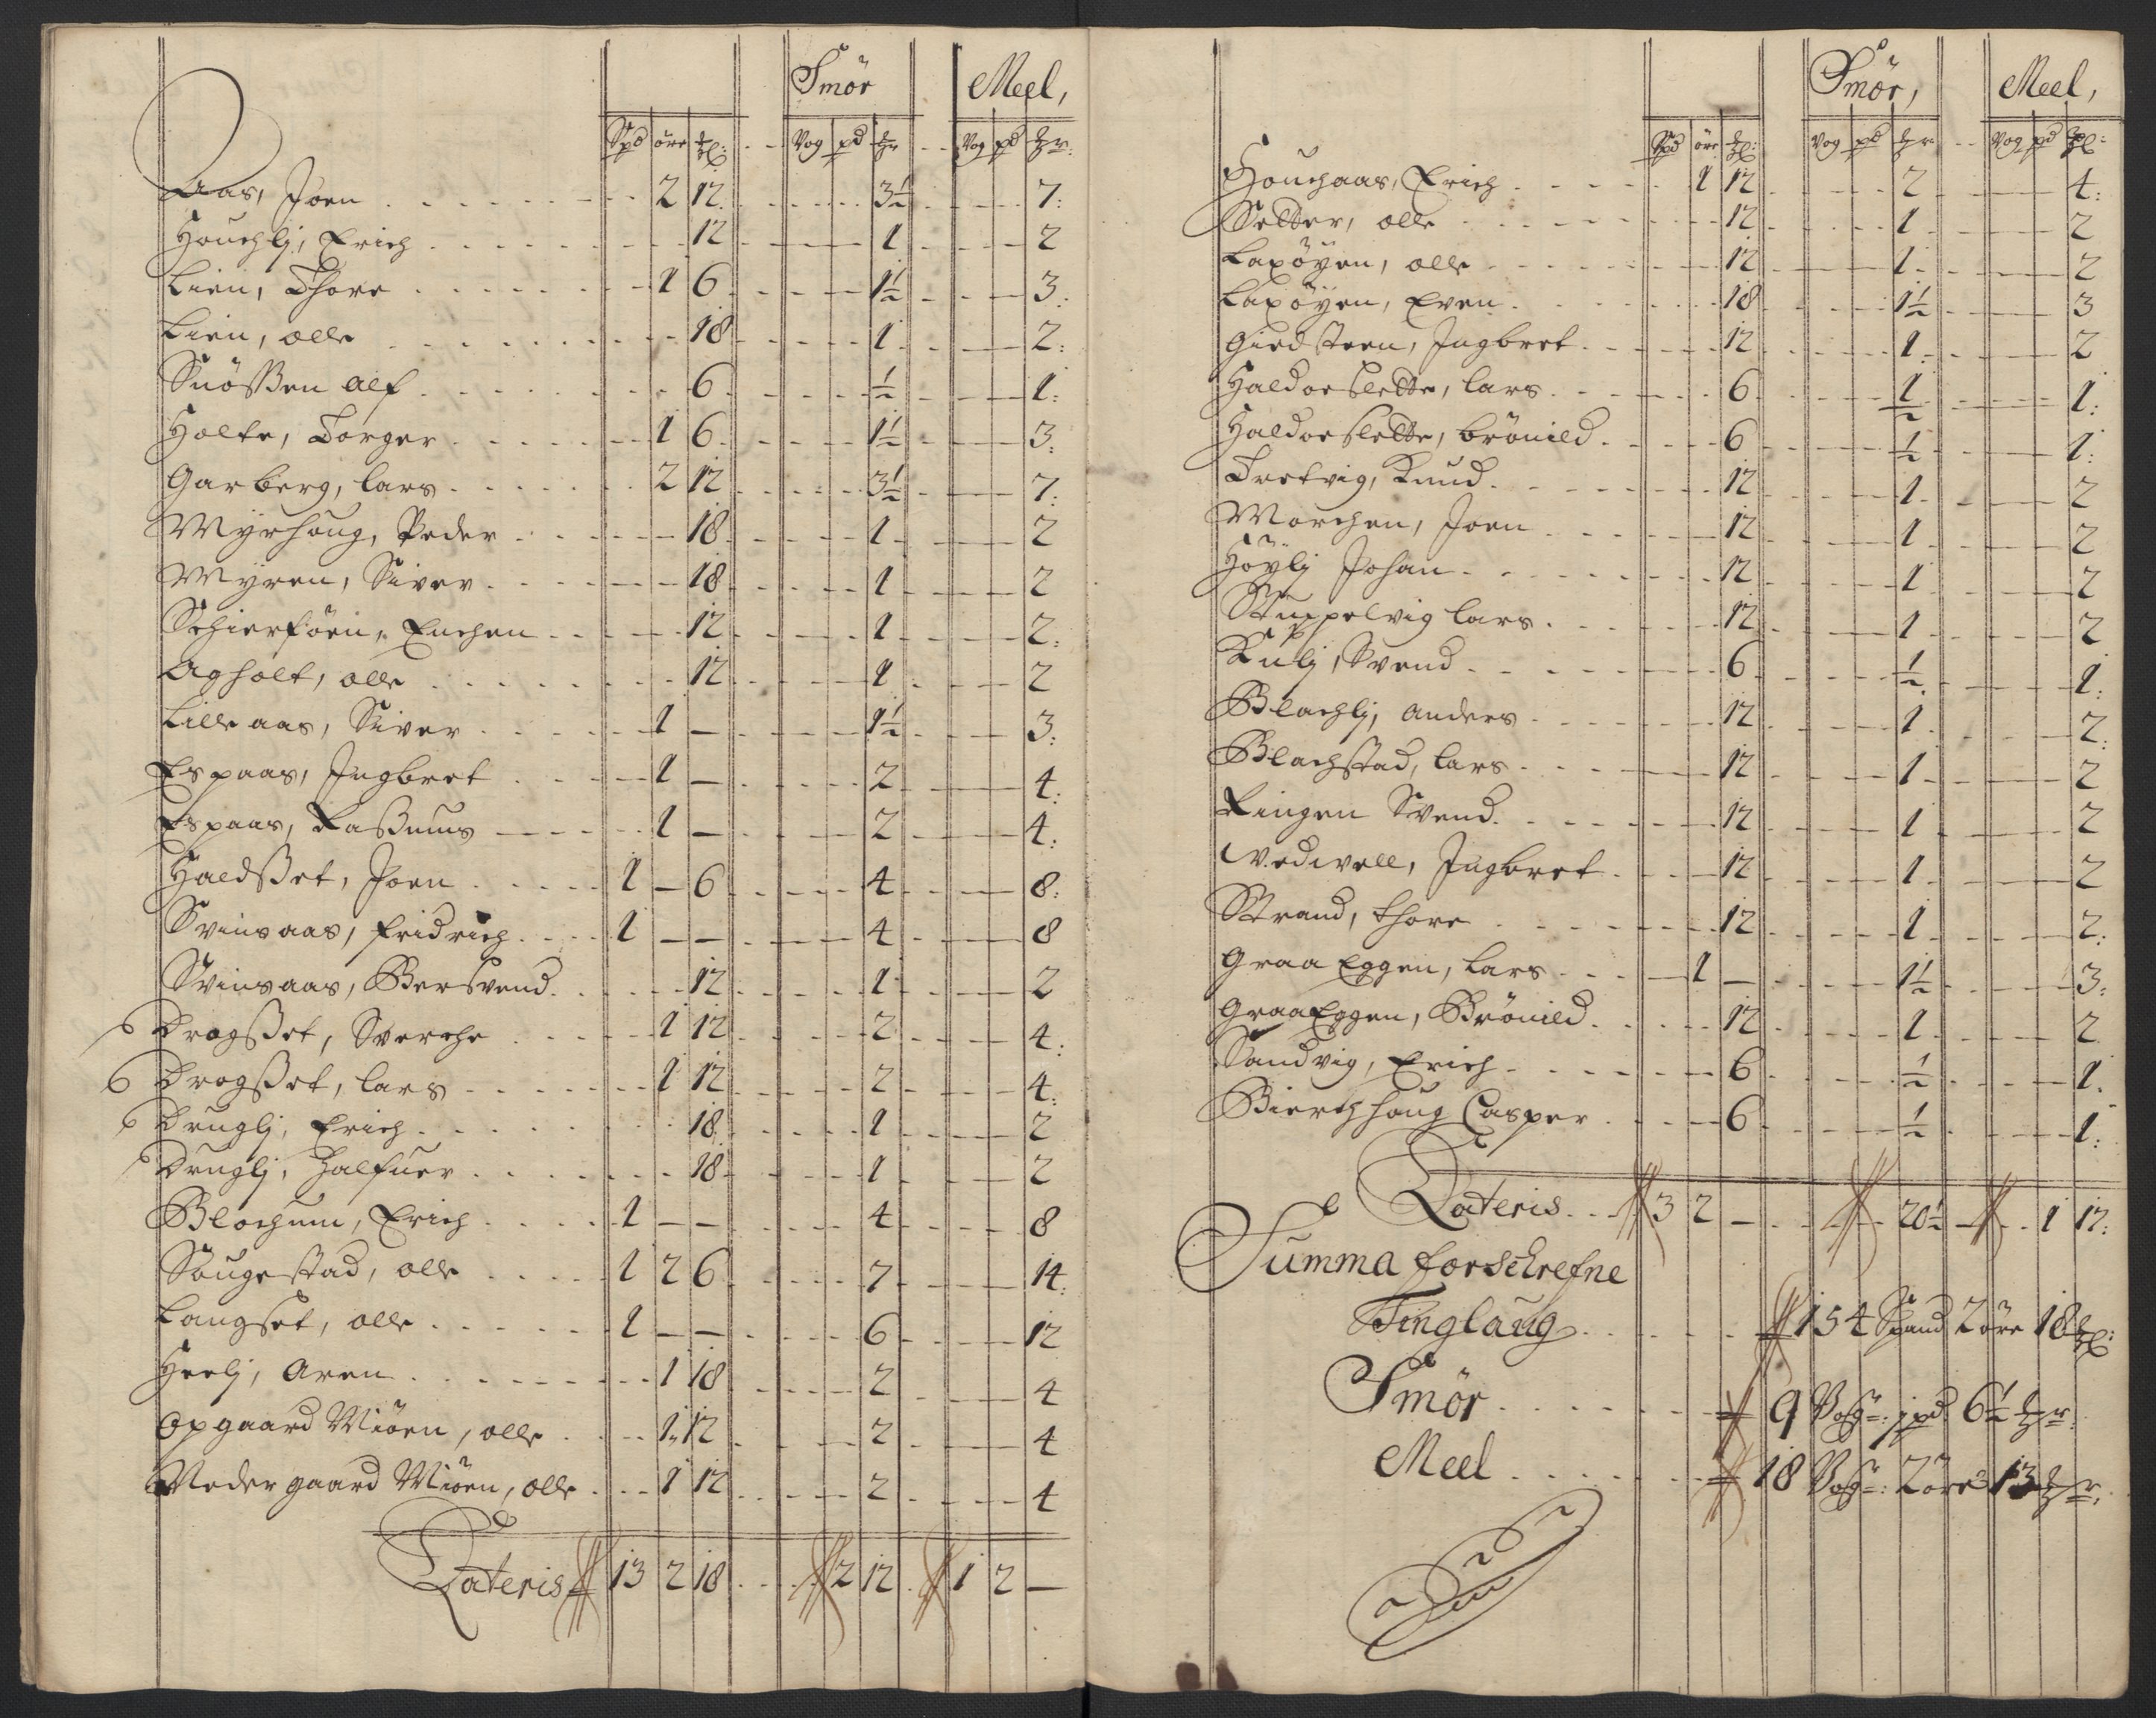 Smör Meel,
Spd öre Mkl: Vog pd Mkr Vog pd Mkr:
Aas, Joen 2 12 3½ 7:
Houchlj, Erich 12 1 2
Lien, Thore 1 6 1½ 3:
Lien, olle 18 1 2:
Snößen Alf 6 ½ 1:
Holte, Torger 1 6 1½ 3:
Garberg, lars 2 12 3½ 7:
Myrhoug, Peder 18 1 2
Myren, Siver 18 1 2
Schierföen, Enchen 12 1 2:
Agholt, olle 12 1 2
Lille aas, Siver 1 – 1½ 3:
Espaas, Ingbret 1 – 2 4:
Espaas, Raßmus 1 – 2 4:
Haldßet, Joen 1 – 6 4 8:
Svinsaas, fridrich 1 – – 4 8
Svinsaas, Bersvend 12 1 2
6 Drogßet, Sverche 1 12 2 4:
6 Drogßet, lars 1 12 2 4:
6 Druglj, Erich 18 1 2
Druglj, Halfuer 18 1 2
Blochum, Erich 1 – – 4 8
Sougestad, olle 1 2 6 7 14:
Langset, olle 1 – – 6 12
Heelj, Aren 1 18 2 4
Opgaard Miöen, olle 1 12 2 4
Neder gaard Miöen, olle 1 12 2 4
Lateris 13 2 18 2 12 1 2 –
Smör, Meel,
Spd öre Mkl: Vog pd Mkr Vog pd Mkl:
Houchaas, Erich 1 12 2 4:
Setter, olle 12 1 2
Laxöyen, olle 12 1 2
Laxöyen, Even 18 1½ 3
Giedsteen, Ingbret 12 1 2
Haldorslette, lars 6 ½ 1:
Haldorslette, brönild 6 ½ 1:
Tretvig, Knud 12 1 2
Morchen, Joen 12 1 2
Höylj Johan 12 1 2
Stuppelvig lars 12 1 2
Kulj, Svend 6 ½ 1:
Blachlj, anders 12 1 2:
Blachstad, lars 12 1 2
Ringen Svend 12 1 2
Vedwell, Ingbret 12 1 2
Strand, Thore 12 1 2:
Graa Eggen, lars 1 – 1½ 3:
Graa Eggen, Brönild 12 1 2
Sandvig, Erich 6 ½ 1.
Bierchhoug Casper 6 ½ 1:
Lateris 3 2 – 20½ 1 17:
Summa forschrefne
Tinglaug 154 Spand 2 öre 18 Mkl:
Smör 9 Vog: 1 pd 6½ Mkr:
Meel 18 Vog: 2 öre 13 Mkr: